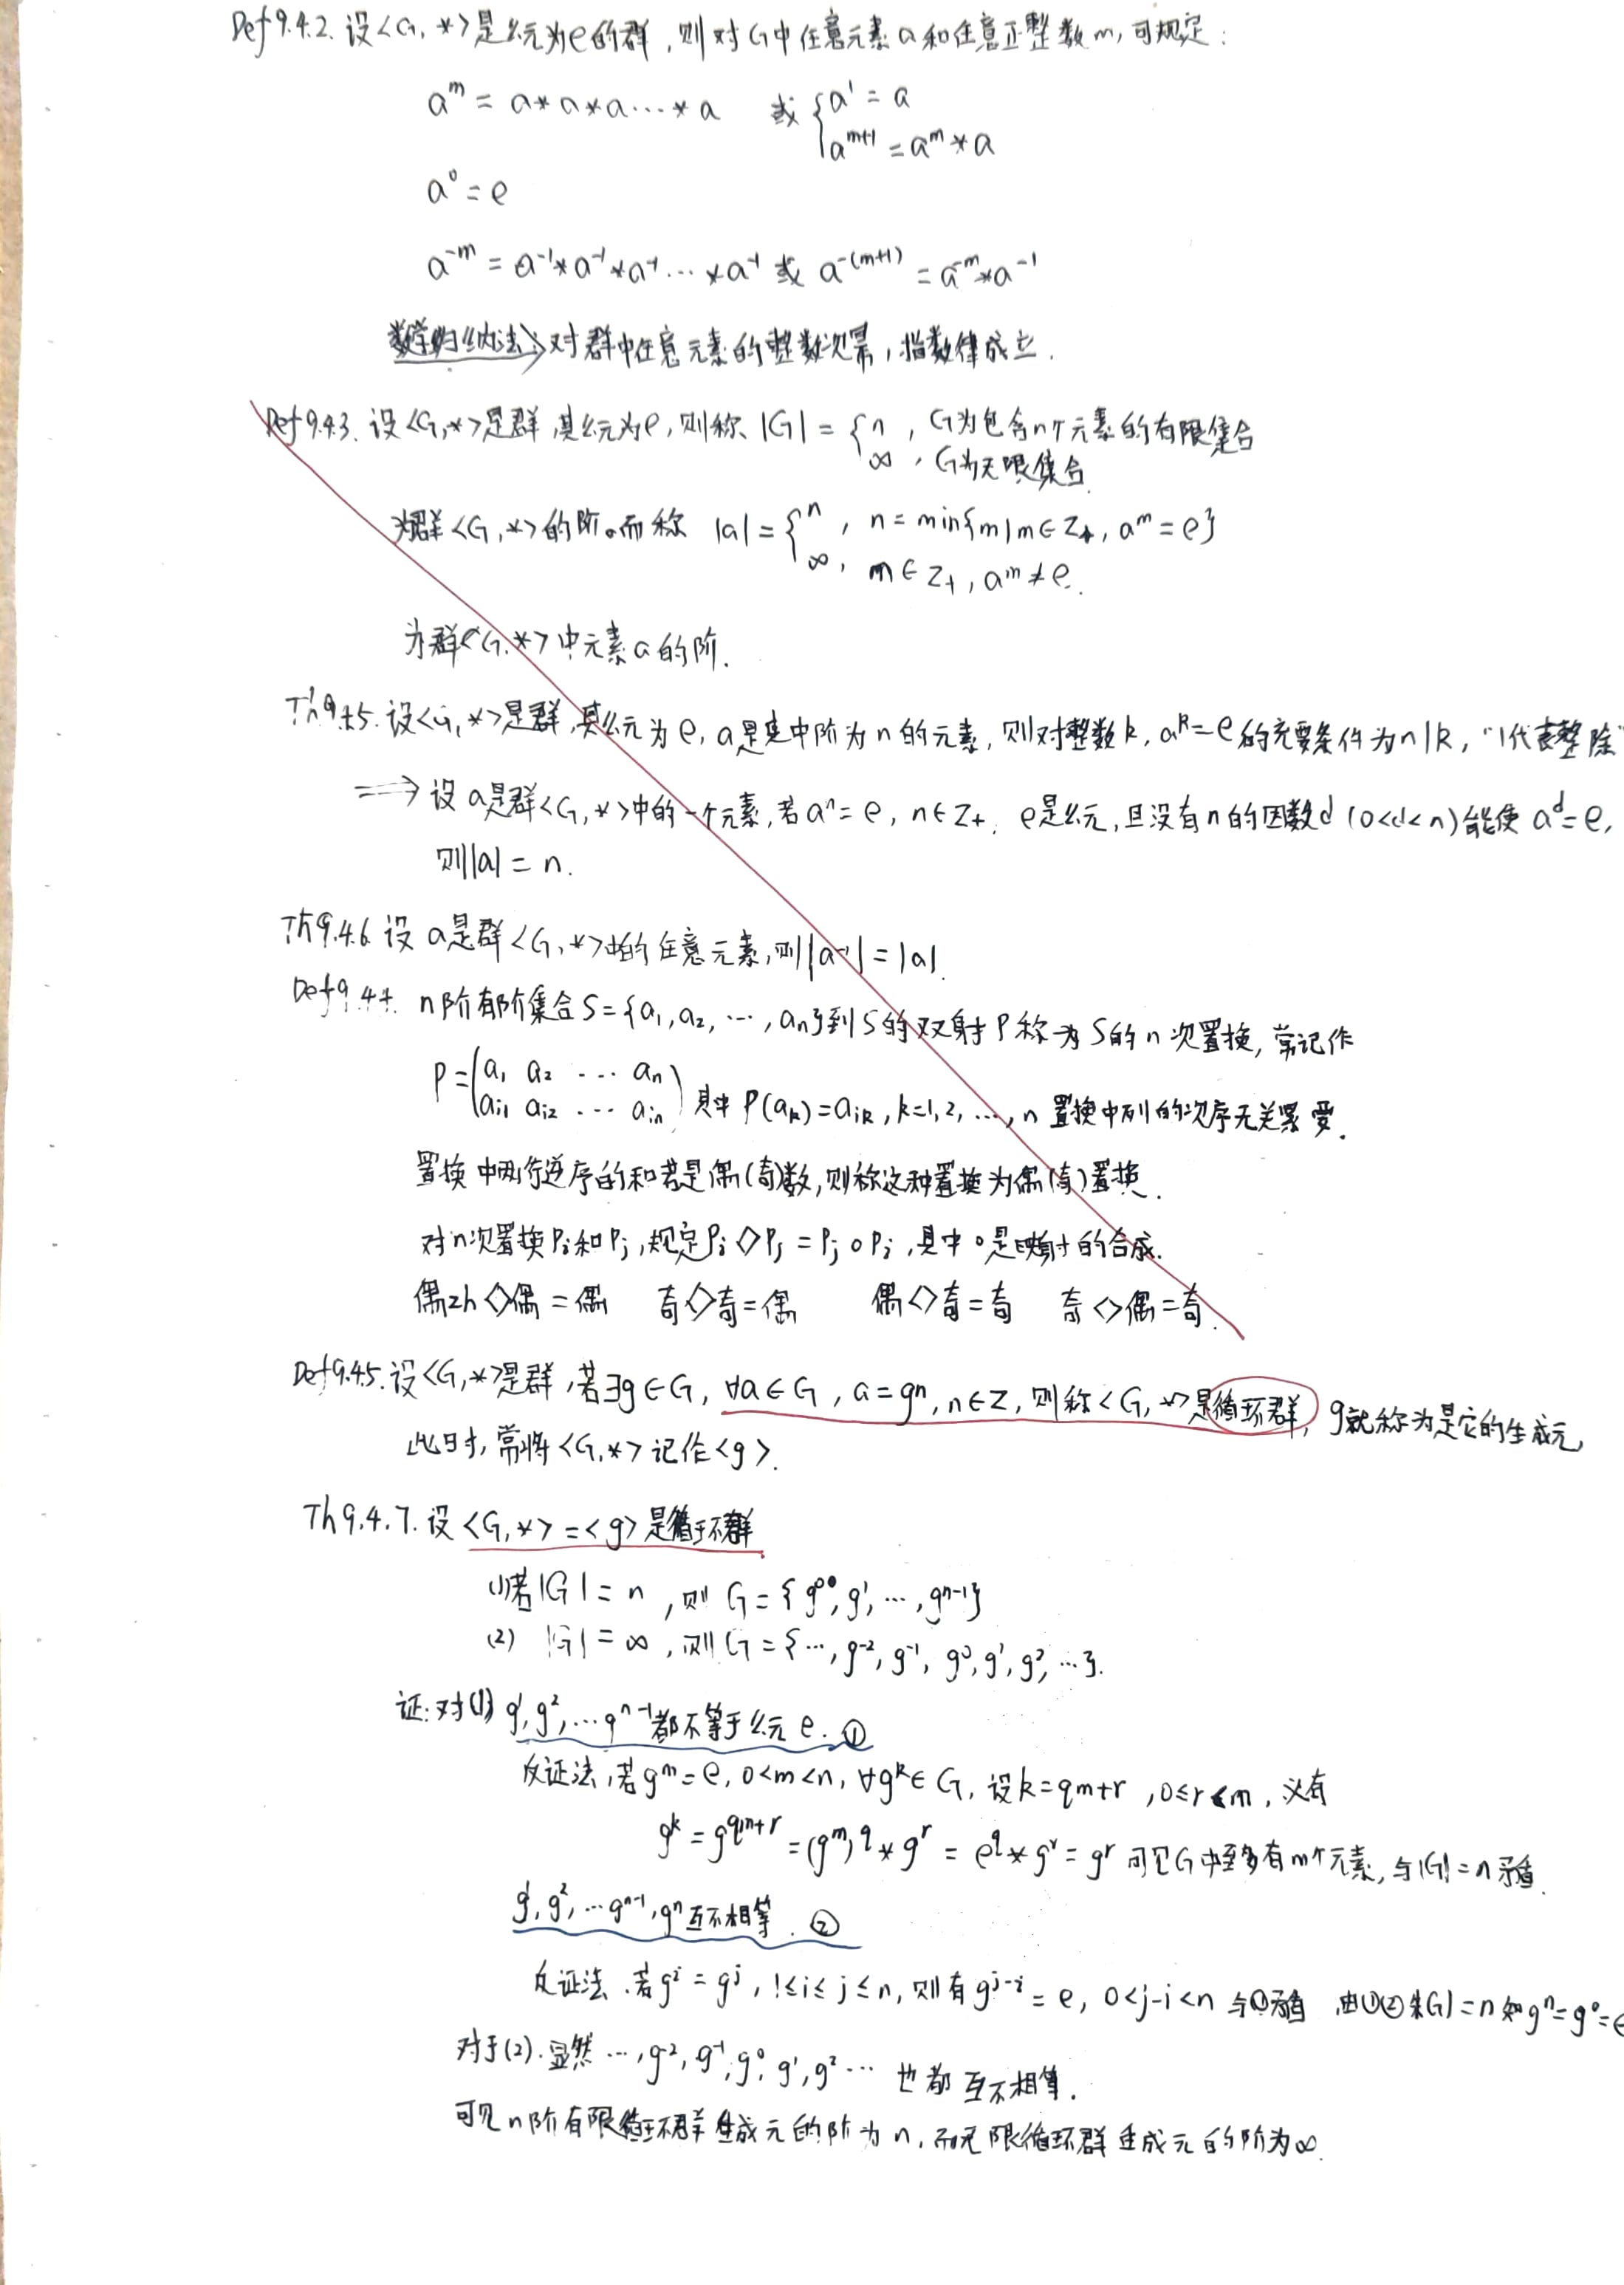 Def9.4.2. 设<G, *>是幺元为e的群,则对G中任意元素a和任意正整数m,可规定:
a^m = a*a*a···*a 或 { a^1 = a
a^{m+1} = a^m * a
a^0 = e
a^{-m} = a^{-1}*a^{-1}*a^{-1}···*a^{-1} 或 a^{-(m+1)} = a^{-m}*a^{-1}
数学归纳法:对群中任意元素的整数次幂,指数律成立.
Def9.4.3. 设<G,*>是群,其幺元为e,则称 |G| = { n , G为包含n个元素的有限集合
∞ , G为无限集合.
为群<G,*>的阶。而称 |a| = { n , n = min{m|m∈Z+, a^m = e}
∞ , m∈Z+, a^m ≠ e.
为群<G,*>中元素a的阶.
Th9.4.5. 设<G,*>是群,其幺元为e, a是其中阶为n的元素,则对整数k, a^k=e的充要条件为n|k, "|代表整除"
⟹ 设a是群<G,*>中的一个元素,若a^n = e, n∈Z+, e是幺元,且没有n的因数d (0<d<n)能使 a^d = e,
则|a| = n.
Th9.4.6. 设a是群<G,*>中的任意元素,则|a^{-1}| = |a|.
Def9.4.4. n阶有阶集合S={a₁,a₂, ···, aₙ}到S的双射P称为S的n次置换,常记作
P = ( a₁ a₂ ··· aₙ
a_{i1} a_{i2} ··· a_{in} ) 其中 P(a_k)=a_{ik}, k=1,2, ···, n 置换中列的次序无关紧要.
置换中两行逆序的和若是偶(奇)数,则称这种置换为偶(奇)置换.
对n次置换P_i和P_j,规定P_i◇P_j = P_j∘P_i,其中∘是映射的合成.
偶◇偶=偶 奇◇奇=偶 偶◇奇=奇 奇◇偶=奇.
Def9.4.5. 设<G,*>是群,若∃g∈G, ∀a∈G, a=g^n, n∈Z,则称<G,*>是循环群, g就称为是它的生成元,
此时,常将<G,*>记作<g>.
Th9.4.7. 设<G,*>=<g>是循环群
(1)若|G| = n ,则 G = {g^0, g^1, ···, g^{n-1}}
(2) |G| = ∞ ,则 G = {···, g^{-2}, g^{-1}, g^0, g^1, g^2, ···}.
证:对(1) g^1, g^2, ···g^{n-1}都不等于幺元e. ①
反证法,若g^m = e, 0<m<n, ∀g^k∈G, 设k=qm+r , 0≤r<m, 必有
g^k = g^{qm+r} = (g^m)^q * g^r = e^q * g^r = g^r 可见G中至多有m个元素,与|G|=n矛盾.
g^1, g^2, ···g^{n-1}, g^n互不相等. ②
反证法.若g^i = g^j, 1≤i≤j≤n,则有g^{j-i} = e, 0<j-i<n 与①矛盾 由①②和|G|=n知g^n=g^0=e
对于(2).显然···, g^{-2}, g^{-1}, g^0, g^1, g^2··· 也都互不相等.
可见n阶有限循环群生成元的阶为n,而无限循环群生成元的阶为∞.